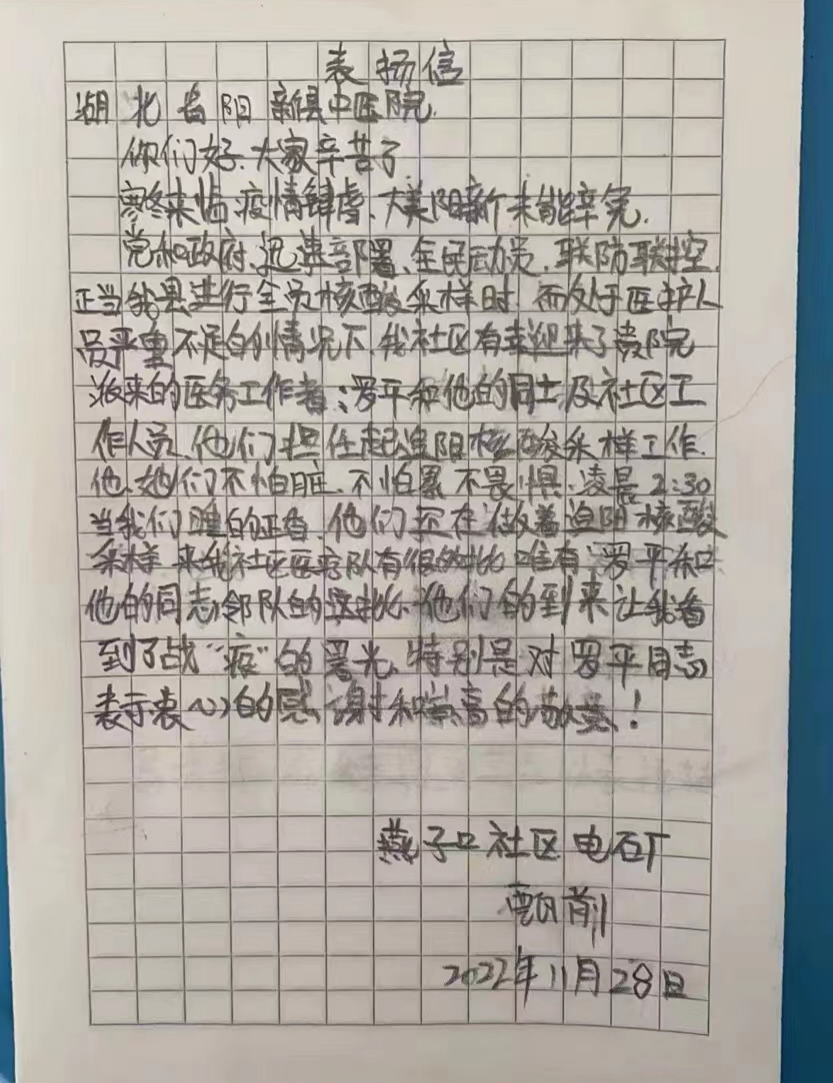 表扬信
湖北省阳新县中医院
你们好.大家辛苦了
寒冬来临.疫情肆虐、大美阳新未能幸免.
党和政府.迅速部署、全民动员.联防联控.
正当我县进行全员核酸采样时.而处于医护人
员严重不足的情况下.我社区有幸迎来了贵院
派来的医务工作者:罗平和他的同士及社区工
作人员.他们担任起追阳核酸采样工作.
他.她们不怕脏.不怕累不畏惧.凌晨2:30
当我们睡的正香.他们还在做着追阳核酸
采样.来我社区医疗队有很多批唯有:罗平和
他的同志邻队的这批.他们的到来让我看
到了战"疫"的署光.特别是对罗平同志
表示衷心的感谢和崇高的敬意!
燕子口社区电石厂
甄前
2022年11月28日